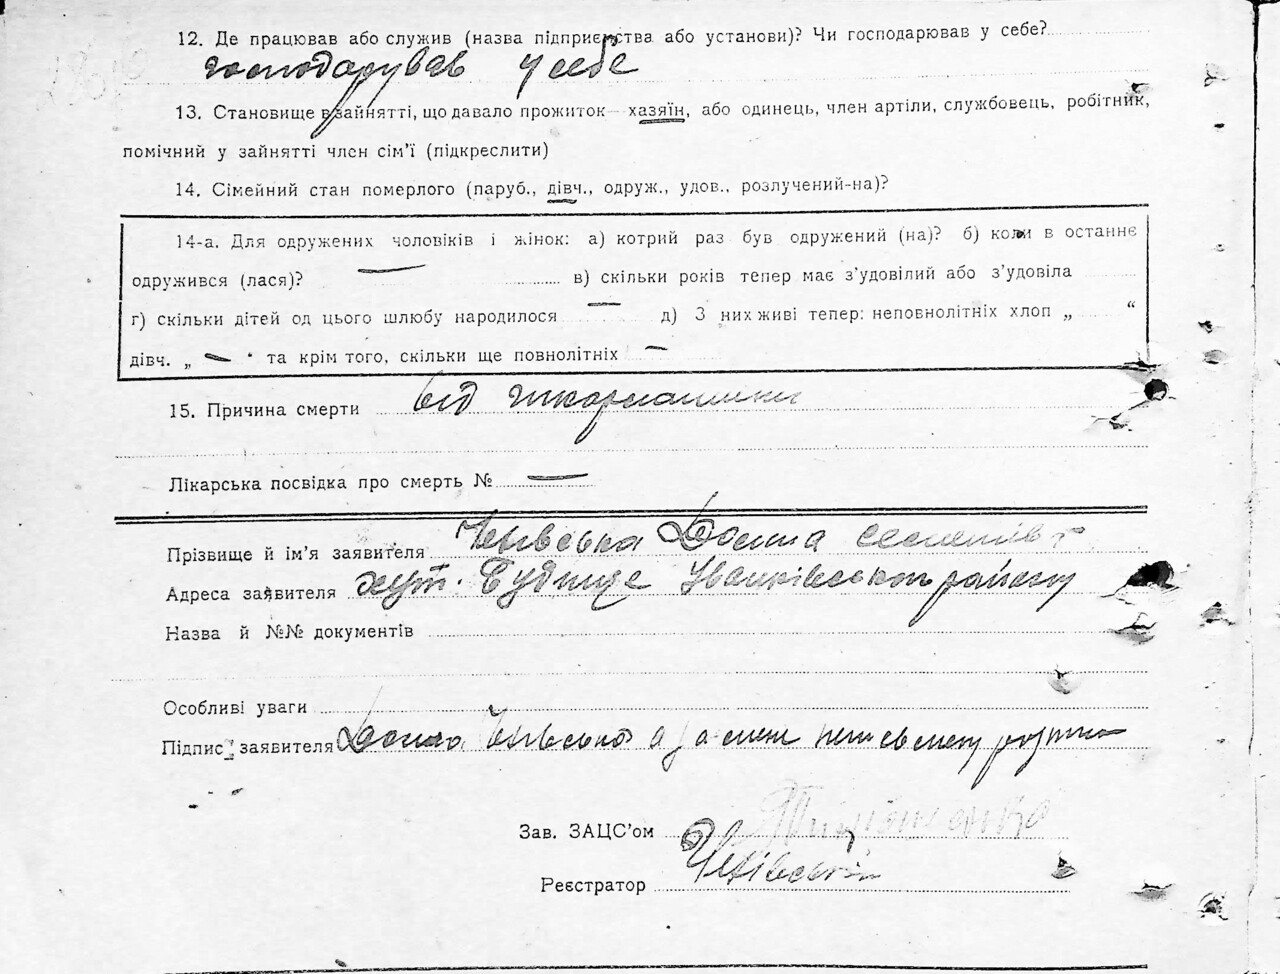 12. Де працював або служив (назва підприємства або установи)? Чи господарював у себе?
господарував у себе
13. Становище в зайнятті, що давало прожиток—хазяїн, або одинець, член артіли, службовець, робітник,
помічний у зайнятті член сім’ї (підкреслити)
14. Сімейний стан померлого (паруб., дівч., одруж., удов., розлучений-на)?
14-а. Для одружених чоловіків і жінок: а) котрий раз був одружений (на)? б) коли в останнє
одружився (лася)? — в) скільки років тепер має з’удовілий або з’удовіла
г) скільки дітей од цього шлюбу народилося — д) З них живі тепер: неповнолітніх хлоп „ “
дівч. „ — “ та крім того, скільки ще повнолітніх —
15. Причина смерти від
Лікарська посвідка про смерть № —
Прізвище й ім’я заявителя
Адреса заявителя хут. Будище Іванківського району
Назва й №№ документів
Особливі уваги
Підпис заявителя
Зав. ЗАЦС’ом
Реєстратор